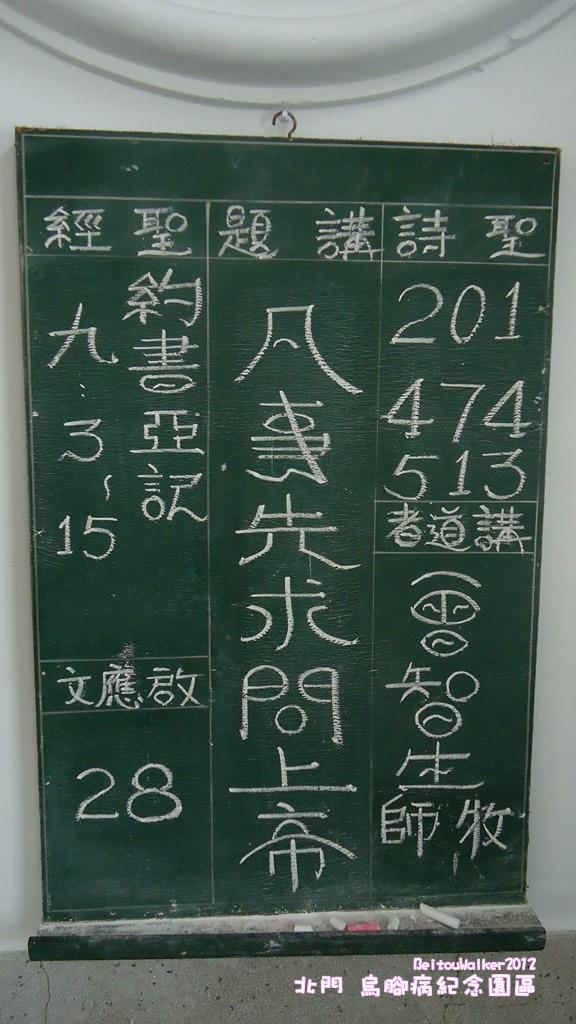 聖詩
201
474
513
講道者
曾智生
牧師
講題
凡事先求問上帝
聖經
約書亞記
九:3~15
啟應文
28
BeitouWalker2012
北門 烏腳病紀念園區